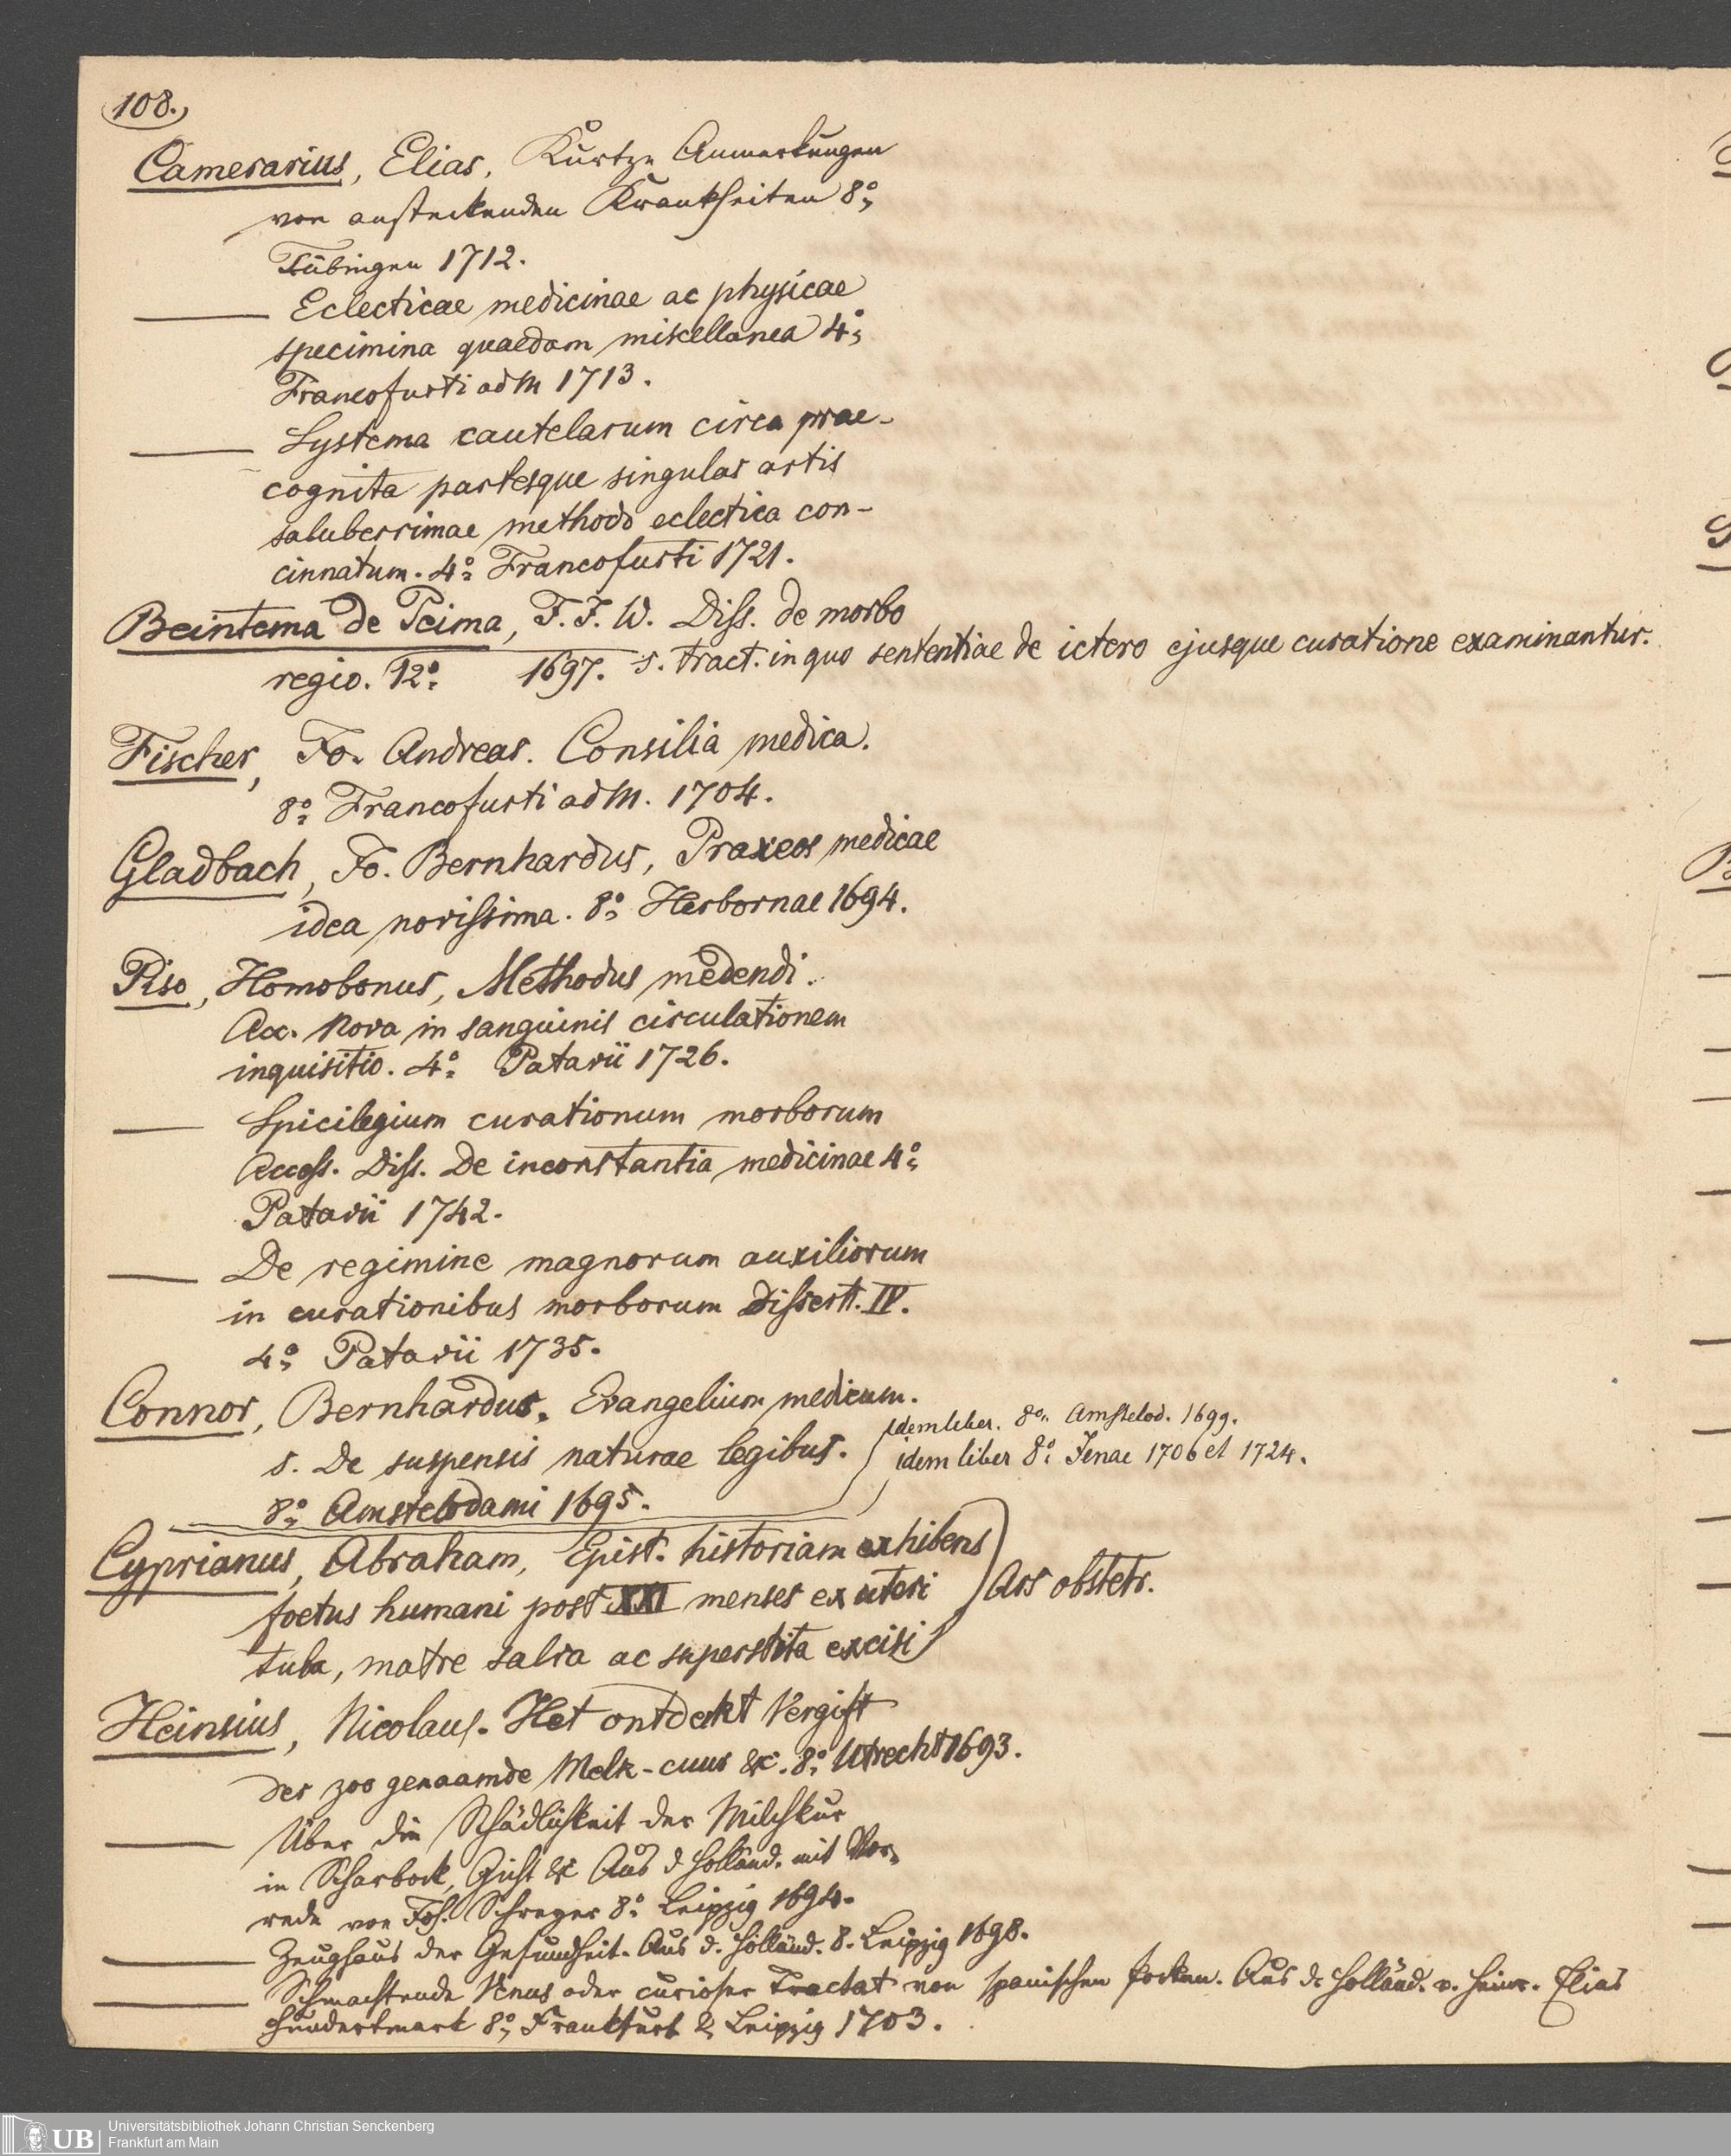 108.
Camerarius, Elias, Kurtze Anmerkungen
von ansteckenden Krankheiten 8º
Tübingen 1712.
— Eclecticae medicinae ac physicae
specimina quaedam miscellanea 4º
Francofurti ad M 1713.
— Systema cautelarum circa prae-
cognita partesque singulas artis
saluberrimae methodo eclectica con-
cinnatum. 4º Francofurti 1721.
Beintema de Peima, J. J. W. Diss. de morbo
regio. 12º 1697. s. tract. in quo sententiae de ictero ejusque curatione examinantur.
Fischer, Jo. Andreas. Consilia medica.
8º Francofurti ad M. 1704.
Gladbach, Jo. Bernhardus, Praxeos medicae
idea novissima. 8º Herbornae 1694.
Piso, Homobonus, Methodus medendi.
Acc. Nova in sanguinis circulationem
inquisitio. 4º Patavii 1726.
— Spicilegium curationum morborum
Access. Diss. De inconstantia medicinae 4º
Patavii 1742.
— De regimine magnorum auxiliorum
in curationibus morborum Dissert. IV.
4º Patavii 1735.
Connor, Bernhardus. Evangelium medicum.
s. De suspensis naturae legibus.
8º Amstelodami 1695.
idem liber. 8º Amstelod. 1699.
idem liber 8º Jenae 1706 et 1724.
Cyprianus, Abraham, Epist. historiam exhibens
foetus humani post XXI menses ex uteri
tuba, matre salva ac superstita excisi
Ars obstetr.
Heinsius, Nicolaus. Het ontdekt Vergift
der zoo genaamde Melk-cuur &c. 8º Utrecht 1693.
— Über die Schädlichkeit der Milchkur
in Scharbock, Gicht &c Aus d Holländ. mit Vor-
rede von Joh. Schreyer 8º Leipzig 1694.
— Zeughaus der Gesundheit. Aus d. Holländ. 8. Leipzig 1698.
— Schmachtende Venus oder curioser Tractat von spanischen Pocken. Aus d. Holländ. v. Heinr. Elias
Hundertmark 8º Frankfurt & Leipzig 1703.
UB
Universitätsbibliothek Johann Christian Senckenberg
Frankfurt am Main